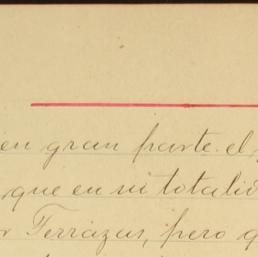 en gran parte el
que en su totalid
r Terrazas, pero q